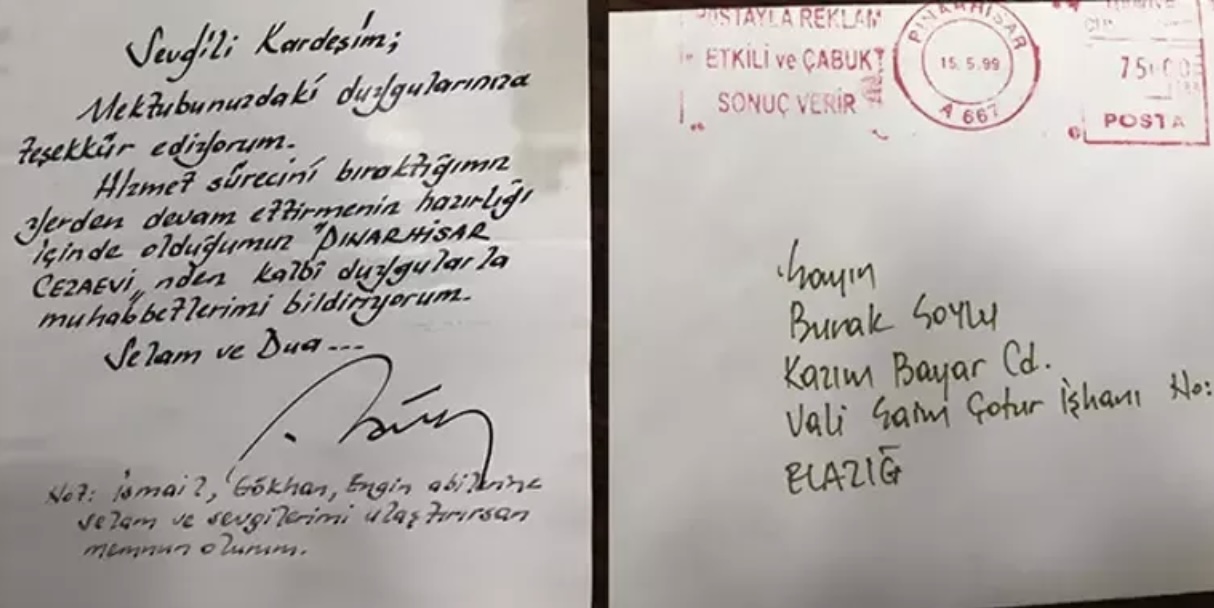 Sevgili Kardeşim;
Mektubunuzdaki duygularınıza
teşekkür ediyorum.
Hizmet sürecini bıraktığımız
yerden devam ettirmenin hazırlığı
içinde olduğumuz "PINARHİSAR
CEZAEVİ„nden kalbî duygularla
muhabbetlerimi bildiriyorum.
Selam ve Dua---
Not: İsmail, Gökhan, Engin abilerine
selam ve sevgilerimi ulaştırırsan
memnun olurum.
POSTAYLA REKLAM
ETKİLİ ve ÇABUK
SONUÇ VERİR
PINARHİSAR
15.5.99
A 667
POSTA
Sayın
Burak Soylu
Kazım Bayar Cd.
Vali Saim Çotur İşhanı No:
ELAZIĞ